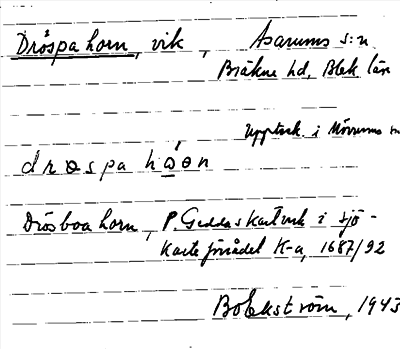 Dröspa horn, vik, Asarums s:n
Bräkne hd, Blek. län
Uppteck. i Mörrums sn
drøspa hǫ́ɵn
Drösboa horn, P. Geddas kartverk i sjö-
karteförrådet K-a, 1687/92
Bo Ekström, 1943